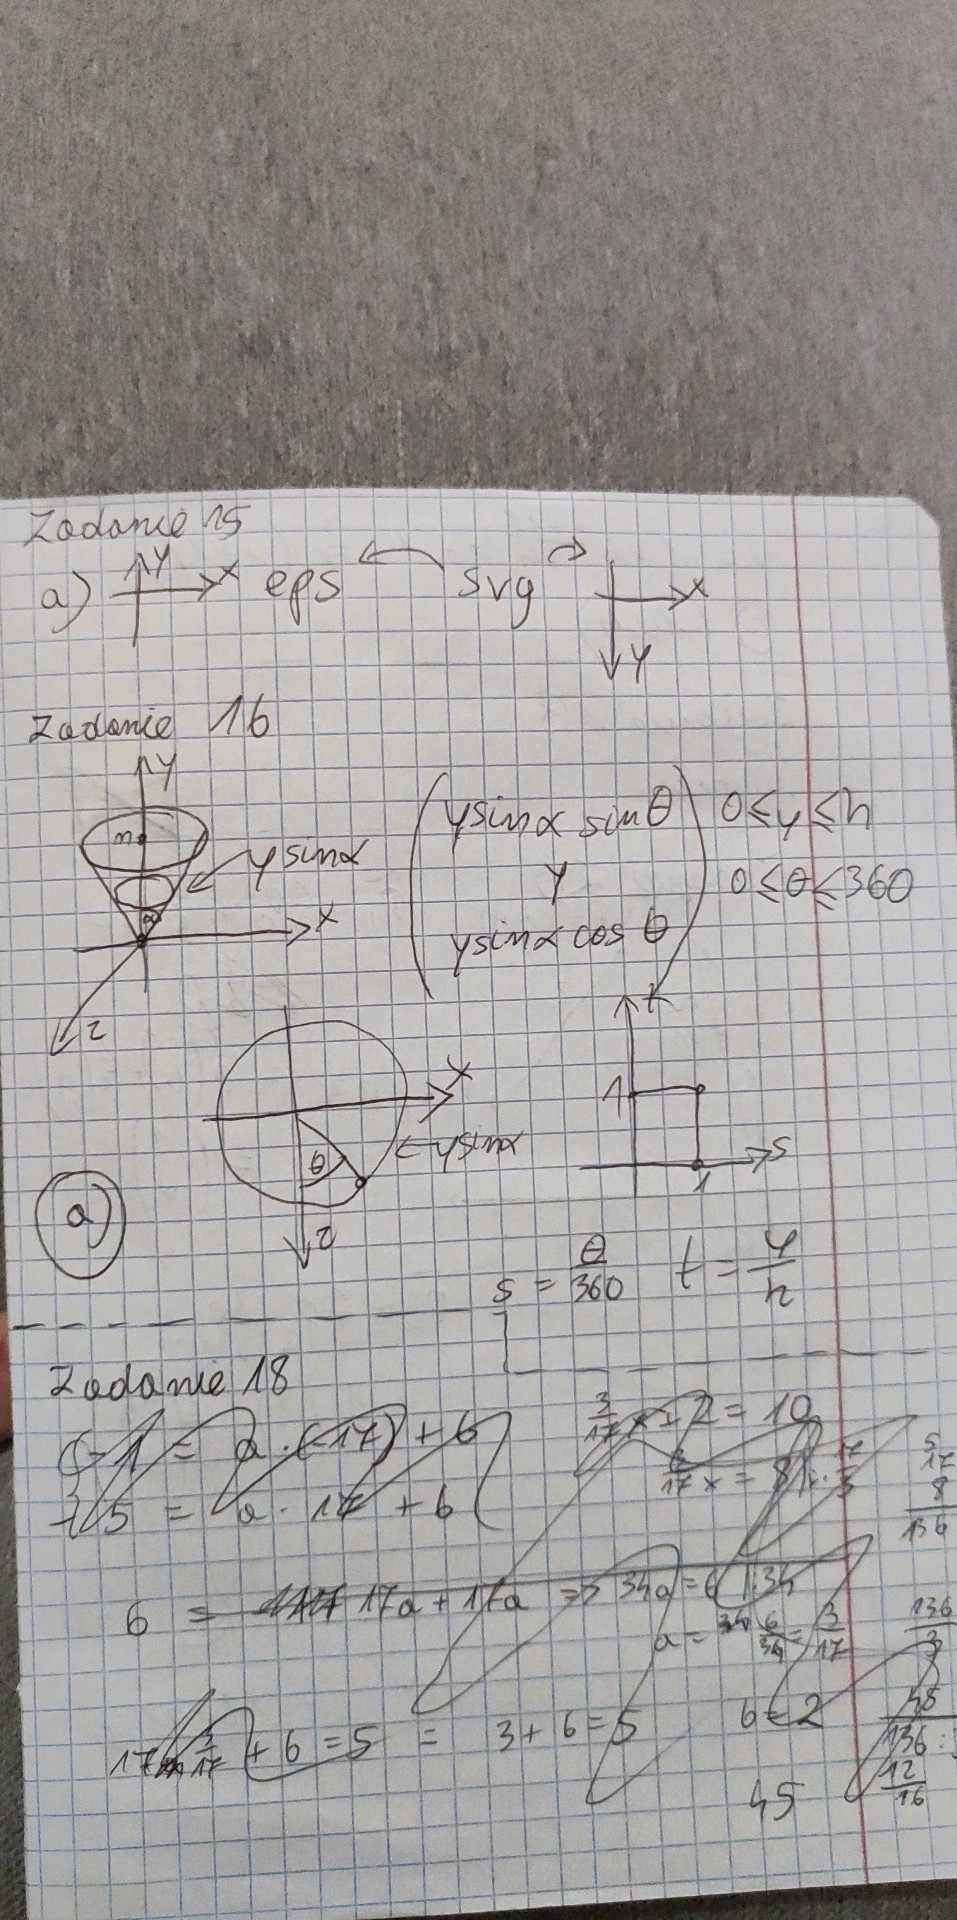 Zadanie 15
a) Y X eps svg X Y
Zadanie 16
Y
h
y sinα
α
X
z
( y sinα sinθ
y
y sinα cos θ )
0 ≤ y ≤ h
0 ≤ θ ≤ 360
X
y sinα
θ
z
t
1
1
s
a)
s = θ/360 t = y/h
Zadanie 18
-1 = a·(-17) + b
5 = a · 17 + b
3/17 x + 2 = 10
3/17 x = 8
17
8
136
6 = 17a + 17a => 34a = 6 |:34
a = 6/34 = 3/17
136
3
17 · 3/17 + b = 5 = 3 + b = 5
b = 2
45
45
136 : 3
12
16